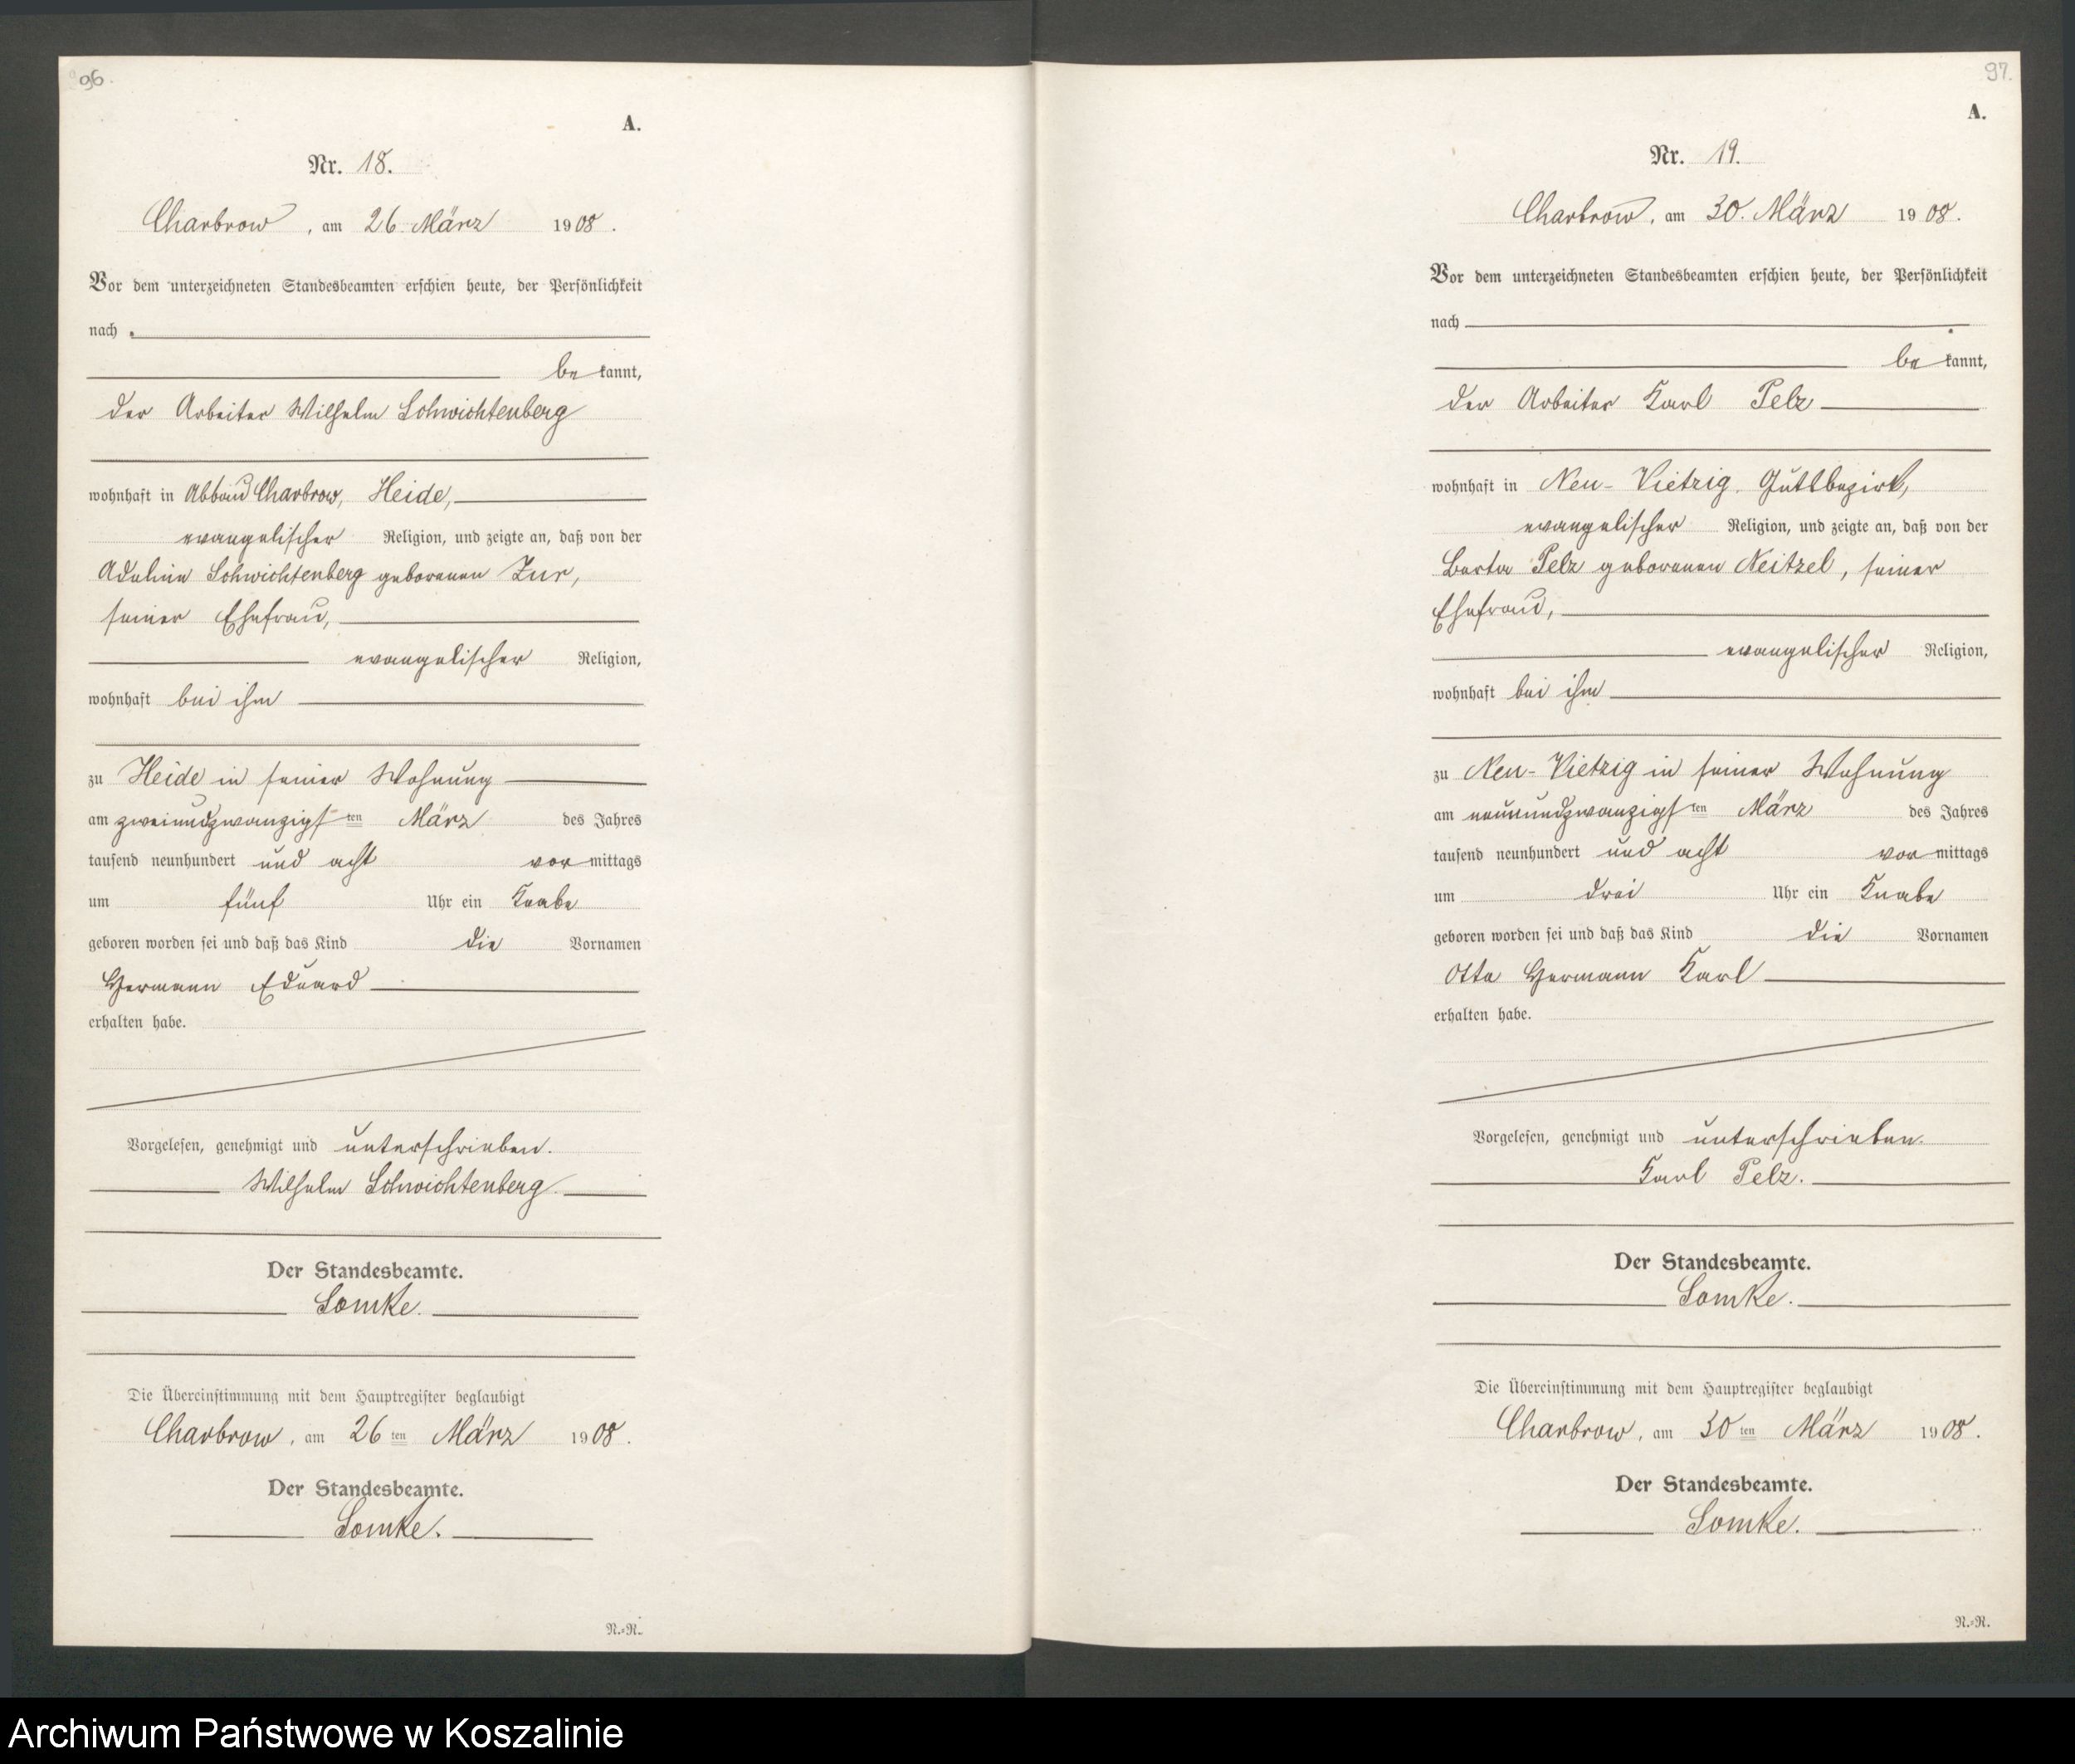 96.
A.
Nr. 18.
Charbrow, am 26. März 1908.
Vor dem unterzeichneten Standesbeamten erschien heute, der Persönlichkeit
nach
bekannt,
der Arbeiter Wilhelm Schwichtenberg
wohnhaft in Abbau Charbrow, Heide,
evangelischer Religion, und zeigte an, daß von der
Adeline Schwichtenberg geborenen Zur,
seiner Ehefrau,
evangelischer Religion,
wohnhaft bei ihm
zu Heide in seiner Wohnung
am zweiundzwanzigsten März des Jahres
tausend neunhundert und acht vormittags
um fünf Uhr ein Knabe
geboren worden sei und daß das Kind die Vornamen
Hermann Eduard
erhalten habe.
Vorgelesen, genehmigt und unterschrieben.
Wilhelm Schwichtenberg.
Der Standesbeamte.
Lomke.
Die Übereinstimmung mit dem Hauptregister beglaubigt
Charbrow, am 26ten März 1908.
Der Standesbeamte.
Lomke.
N.=R.
97.
A.
Nr. 19.
Charbrow, am 30. März 1908.
Vor dem unterzeichneten Standesbeamten erschien heute, der Persönlichkeit
nach
bekannt,
der Arbeiter Karl Pelz
wohnhaft in Neu-Vietzig Gutsbezirk,
evangelischer Religion, und zeigte an, daß von der
Berta Pelz geborenen Neitzel, seiner
Ehefrau,
evangelischer Religion,
wohnhaft bei ihm
zu Neu-Vietzig in seiner Wohnung
am neunundzwanzigsten März des Jahres
tausend neunhundert und acht vormittags
um drei Uhr ein Knabe
geboren worden sei und daß das Kind die Vornamen
Otto Hermann Karl
erhalten habe.
Vorgelesen, genehmigt und unterschrieben.
Karl Pelz.
Der Standesbeamte.
Lomke.
Die Übereinstimmung mit dem Hauptregister beglaubigt
Charbrow, am 30ten März 1908.
Der Standesbeamte.
Lomke.
N.=R.
Archiwum Państwowe w Koszalinie